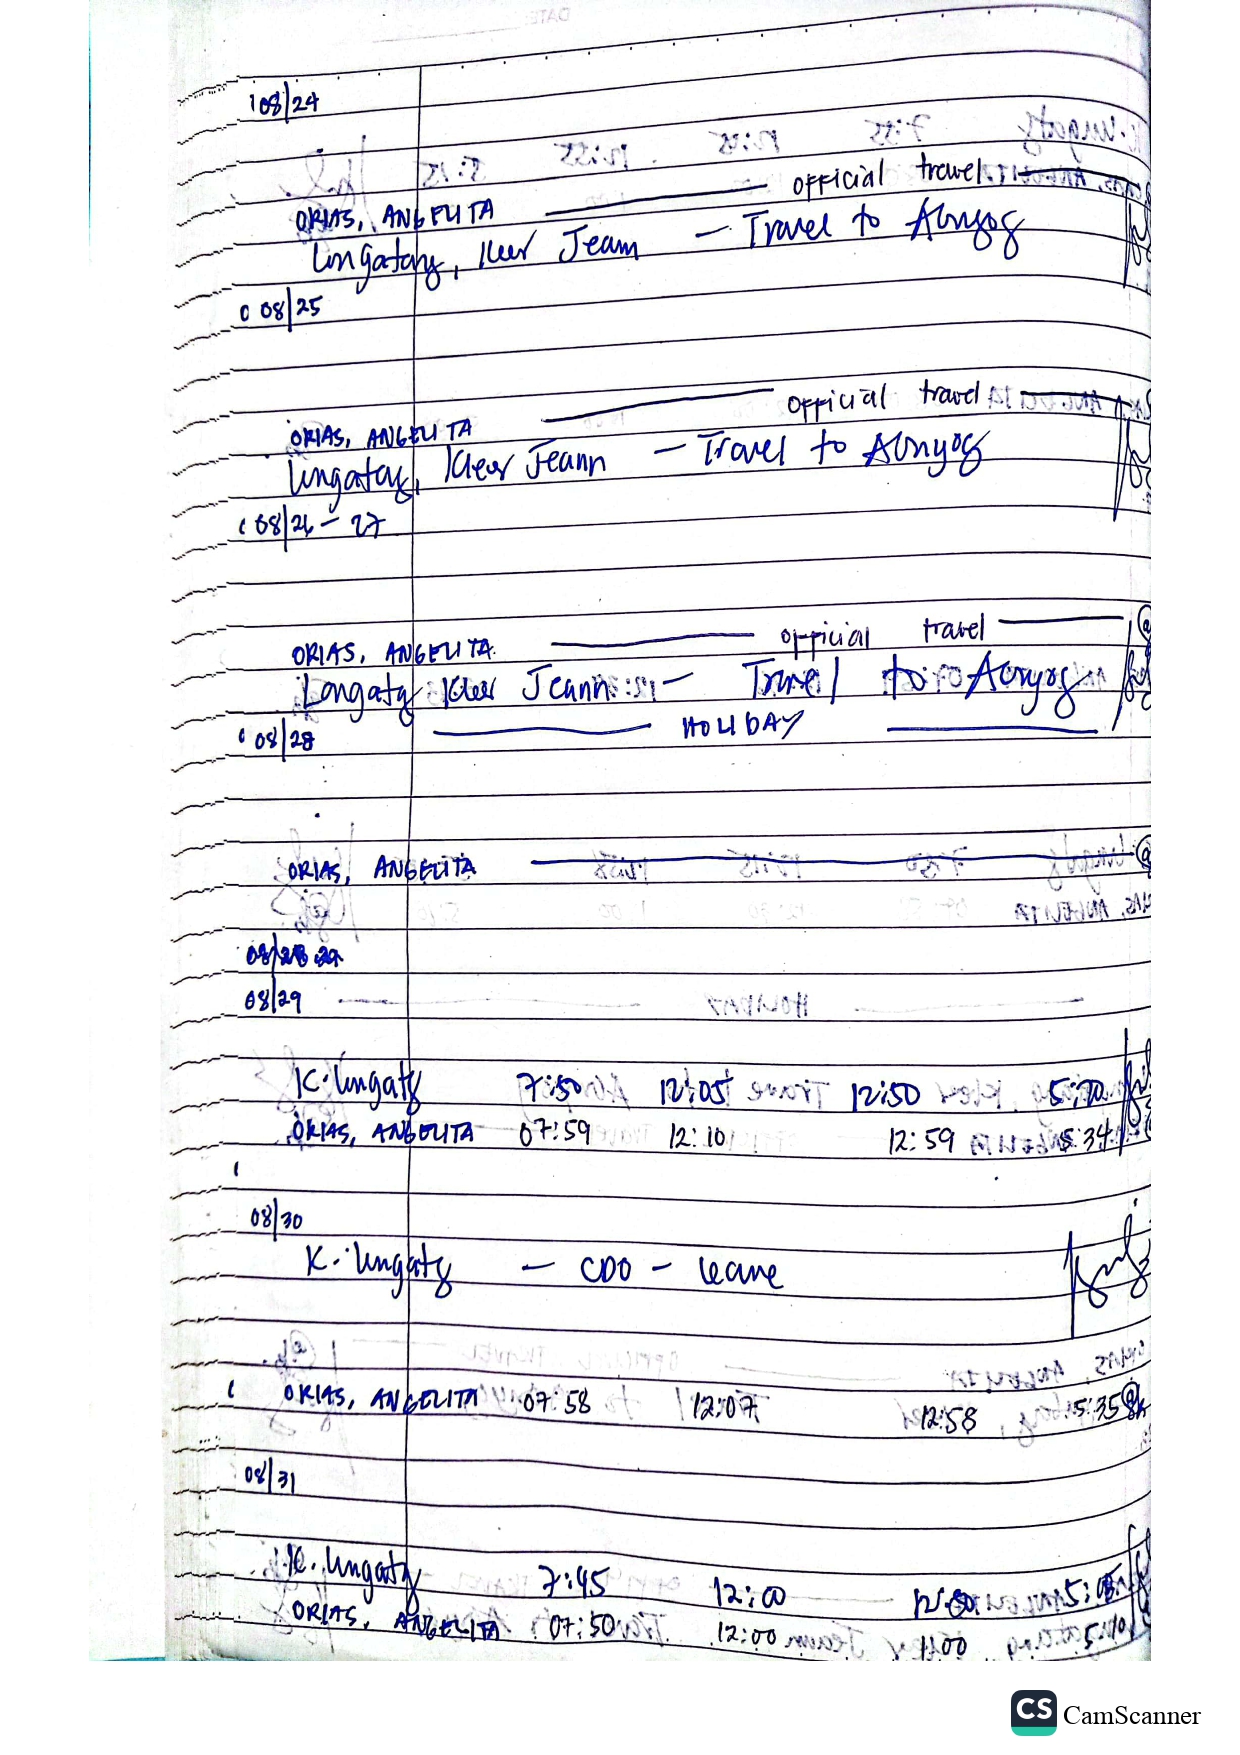 08/24
ORIAS, ANGELITA official travel
Lingatong, Kleer Jeam - Travel to Abuyog
08/25
ORIAS, ANGELITA official travel
Lingatong, Kleer Jeann - Travel to Abuyog
08/26 - 27
ORIAS, ANGELITA official travel
Kleer Jeann - Travel to Abuyog
08/28 HOLIDAY
ORIAS, ANGELITA
08/29
K. Lingatong 7:50 12:05 12:50
ORIAS, ANGELITA 07:59 12:10 12:59 5:34
08/30
K. Lingatong - CDO - leave
ORIAS, ANGELITA 07:58 12:07 12:58 5:35
08/31
K. Lingatong 7:45 12:00
ORIAS, ANGELITA 07:50 12:00 1:00 5:10
CS CamScanner